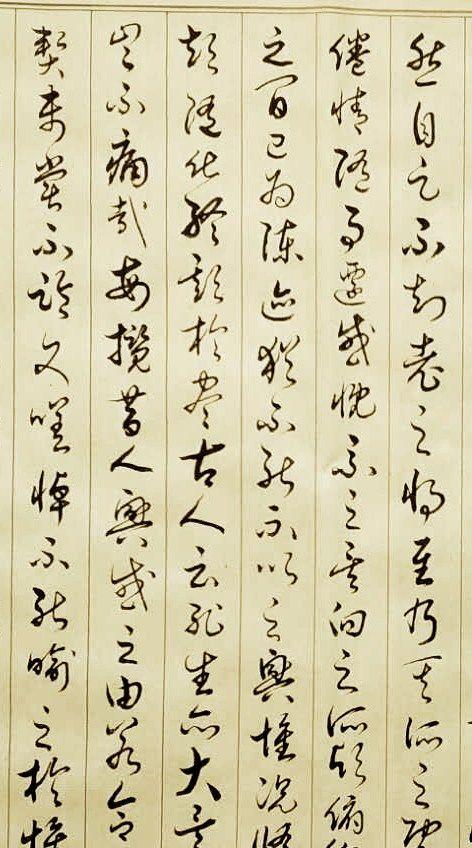 然自足不知老之將至及其所之既
倦情隨事遷感慨系之矣向之所欣俯仰
之間已為陳迹猶不能不以之興懷況脩
短隨化終期於盡古人云死生亦大矣
豈不痛哉每攬昔人興感之由若合
契未嘗不臨文嗟悼不能喻之於懷